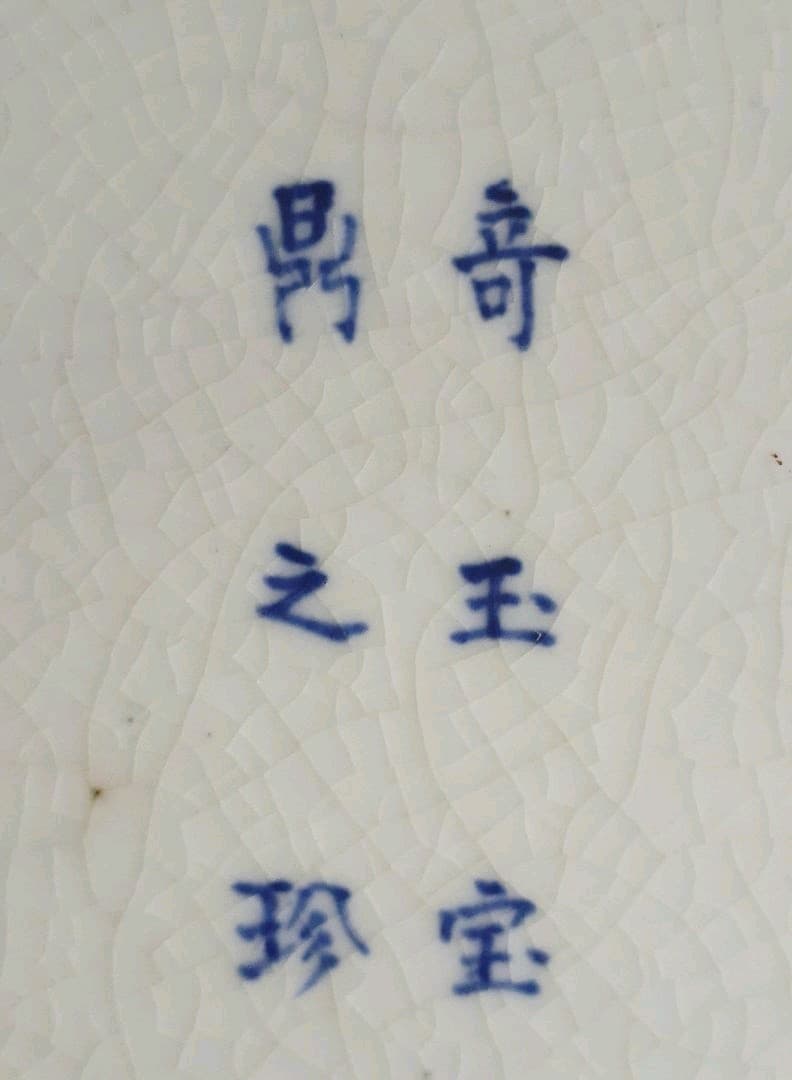 竒玉宝
鼎之珍